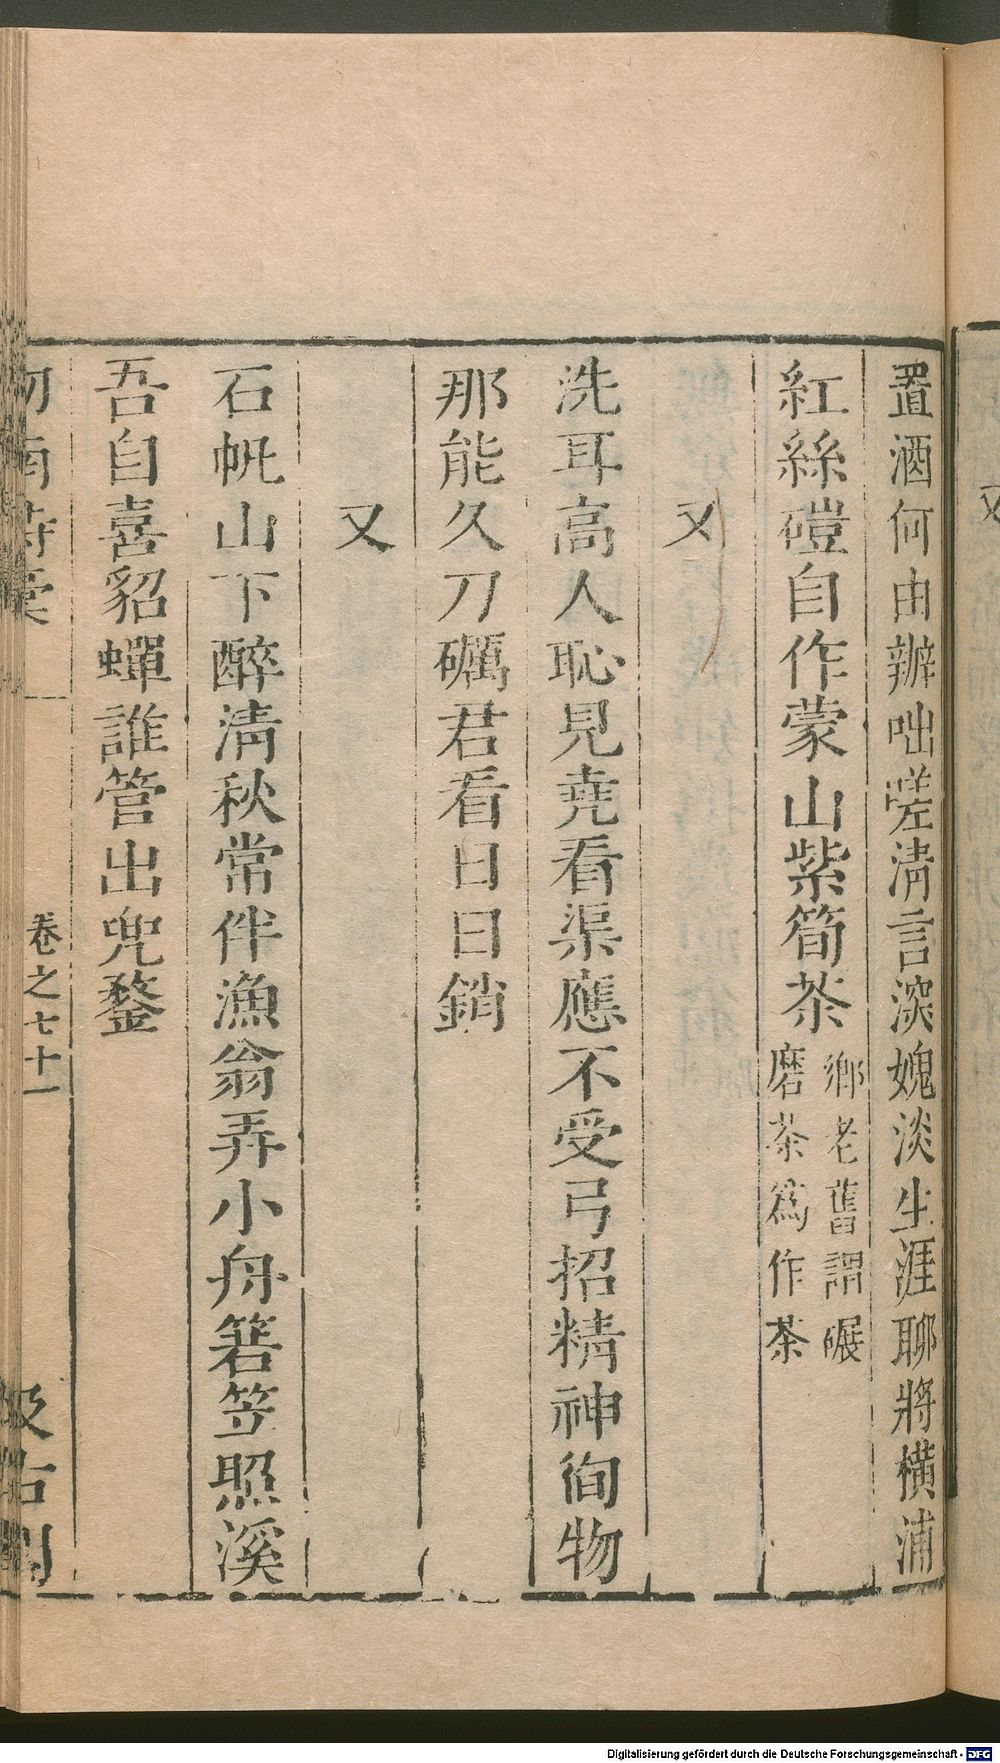 置酒何由辦咄嗟清言深媿淡生涯聊將橫浦
紅絲磑自作蒙山紫筍茶鄉老舊謂碾
磨茶爲作茶
又
洗耳高人恥見堯看渠應不受弓招精神徇物
那能久刀礪君看日日銷
又
石帆山下醉清秋常伴漁翁弄小舟箬笠照溪
吾自喜貂蟬誰管出兜鍪
卷之七十一
又
Digitalisierung gefördert durch die Deutsche Forschungsgemeinschaft - DFG